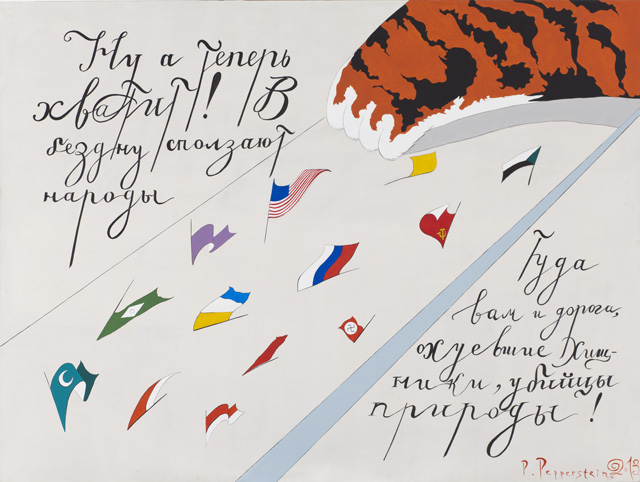 Ну а теперь
хватит! В
бездну сползают
народы
Туда
вам и дорога,
охуевшие хищ-
ники, убийцы
природы!
P. Pepperstein 2013